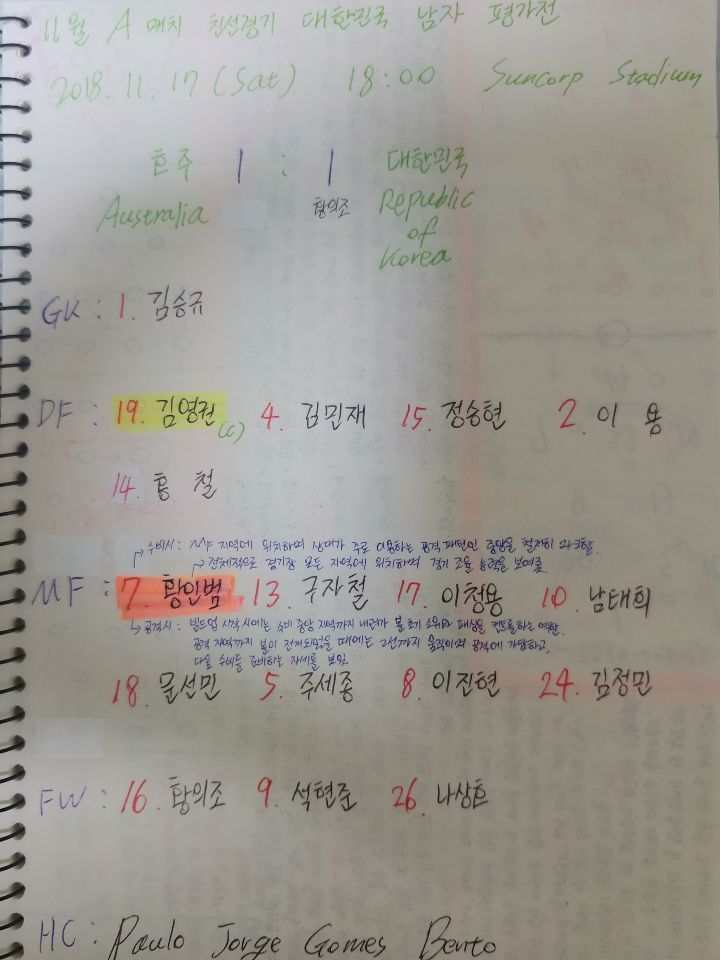 11월 A 매치 친선경기 대한민국 남자 평가전
2018. 11. 17 (Sat) 18:00 Suncorp Stadium
호주 1 : 1 대한민국
Australia 황의조 Republic
of
Korea
GK : 1. 김승규
DF : 19. 김영권 (C) 4. 김민재 15. 정승현 2. 이 용
14. 홍 철
→ 수비시 : MF 지역에 위치하며 상대가 주로 이용하는 공격 패턴인 중앙을 철저히 마크함.
→ 전체적으로 경기장 모든 지역에 위치하며 경기 조율 능력을 보여줌.
MF : 7. 황인범 13. 구자철 17. 이청용 10. 남태희
→ 공격시 : 빌드업 시작 시에는 수비 중앙 지역까지 내려가 볼 소유와 패싱을 컨트롤하는 역할.
공격 지역까지 볼이 전개되었을 때에는 2선까지 움직이며 공격에 가담하고,
다음 수비를 준비하는 자세를 보임.
18. 문선민 5. 주세종 8. 이진현 24. 김정민
FW : 16. 황의조 9. 석현준 26. 나상호
HC : Paulo Jorge Gomes Bento